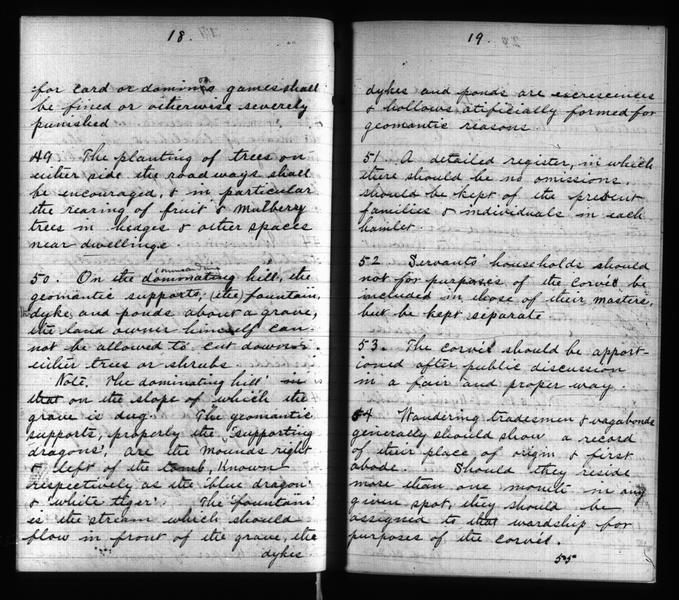 18.
for card or dominos games shall
be fined or otherwise severely
punished
49 The planting of trees on
either side the roadways shall
be encouraged, & in particular
the rearing of fruit & mulberry
trees in hedges & other spaces
near dwellings.
50. On the dominating hill, the
geomantic supports, (the) fountain,
dyke and ponds about a grave,
the land owner himself can
not be allowed to cut down
either trees or shrubs.
Note. The dominating hill' is
that on the slope of which the
grave is dug. The geomantic
supports, properly the 'supporting
dragons', are the mounds right
& left of the tomb, known
respectively as the 'blue dragon'
& 'white tiger'. The 'fountain'
is the stream which should
flow in front of the grave, the
dykes
19.
dykes and ponds are excrescences
& hollows atificially formed for
geomantic reasons
51. A detailed register, in which
there should be no omissions,
should be kept of the present
families & individuals in each
hamlet
52. Servants' households should
not for purposes of the Corvée be
included in those of their masters,
but be kept separate
53. The corvée should be apport-
ioned after public discussion
in a fair and proper way.
54 Wandering tradesmen & vagabonds
generally should show a record
of their place of origin & first
abode. Should they reside
more than one month in any
given spot, they should be
assigned to that wardship for
purposes of the corvée.
55